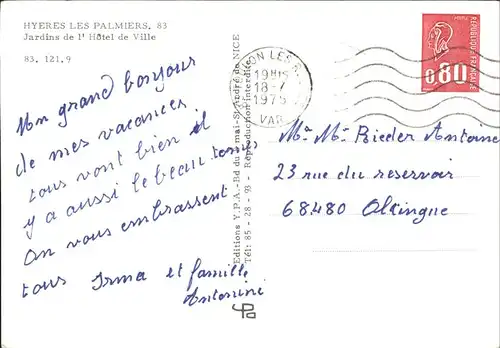 HYERES LES PALMIERS. 83
Jardins de l' Hôtel de Ville
83. 121.9
Un grand bonjour
de mes vacances
tous vont bien il
y a aussi le beau temps
on vous embrassent
tous Irma et famille
Antonini
Editions Y.P.A.-Bd du St-André de NICE
Tél: 85 - 28 - 93 - Reproduction interdite
19H15
18-7
1975
VAR
REPUBLIQUE FRANÇAISE
0,80
Mr Me Rieder Antoine
23 rue du reservoir
68480 Olingue